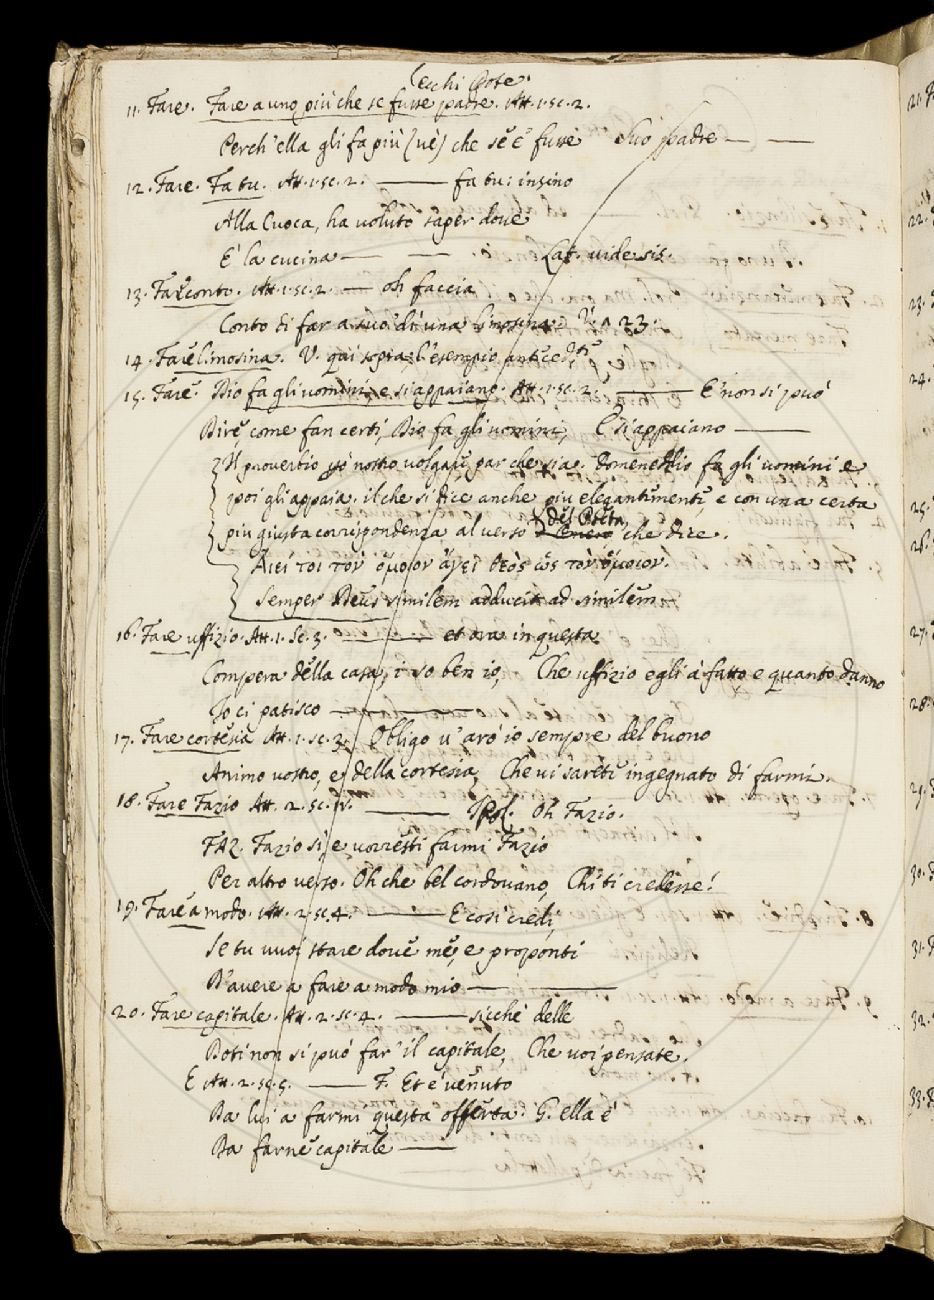 Cecchi Dote.
11. Fare. Fare a uno più che se fusse padre. Att. 1. sc. 2.
Perch'ella gli fa più (ve) che se e' fusse Suo padre — —
12. Fare. Fa tu. Att. 1. sc. 2. — fa tu: insino
Alla Cuoca, ha voluto saper dove
E' la cucina — — Lat. vide sis.
13. Far conto. Att. 1. sc. 2. — oh faccia
Conto di far a suo' dì una limosina. V. n. 23.
14. Fare limosina. V. qui sopra l'esempio anteced.te
15. Fare. Dio fa gli uomini, e si appaiano. Att. 1. sc. 2. — E' non si può
Dire come fan certi, Dio fa gli uomini, E si appaiano —
Il proverbio nostro volgare par che sia. Domeneddio fa gli uomini e
poi gli appaia. il che si dice anche piu elegantemente, e con una certa
piu giusta corrispondenza al verso del Poeta, che dice.
Αἰεί τοι τὸν ὅμοιον ἄγει θεὸς ὡς τὸν ὅμοιον.
Semper Deus similem adducit ad similem.
16. Fare uffizio. Att. 1. Sc. 3. — et ora in questa
Compera della casa, i' so ben io, Che uffizio egli à fatto e quanto danno
Io ci patisco —
17. Fare cortesia Att. 1. sc. 3. Obligo v'arò io sempre del buono
Animo vostro, e della cortesia, Che vi sarete ingegnato di farmi.
18. Fare Fazio Att. 2. sc. — Oh Fazio.
FAZ. Fazio si, e vorresti farmi Fazio
Per altro verso. Oh che bel cordovano, Chi ti credesse!
19. Fare a modo. Att. 2. sc. 4. — E così credi,
Se tu vuoi stare dove me, e proponti
D'avere a fare a modo mio — —
20. Fare capitale. Att. 2. sc. 4. — sicchè delle
Doti non si può far il capitale, Che voi pensate.
E Att. 2. sc. 5. — F. Et è venuto
Da lui a farmi questa offerta. G. ella è
Da farne capitale —